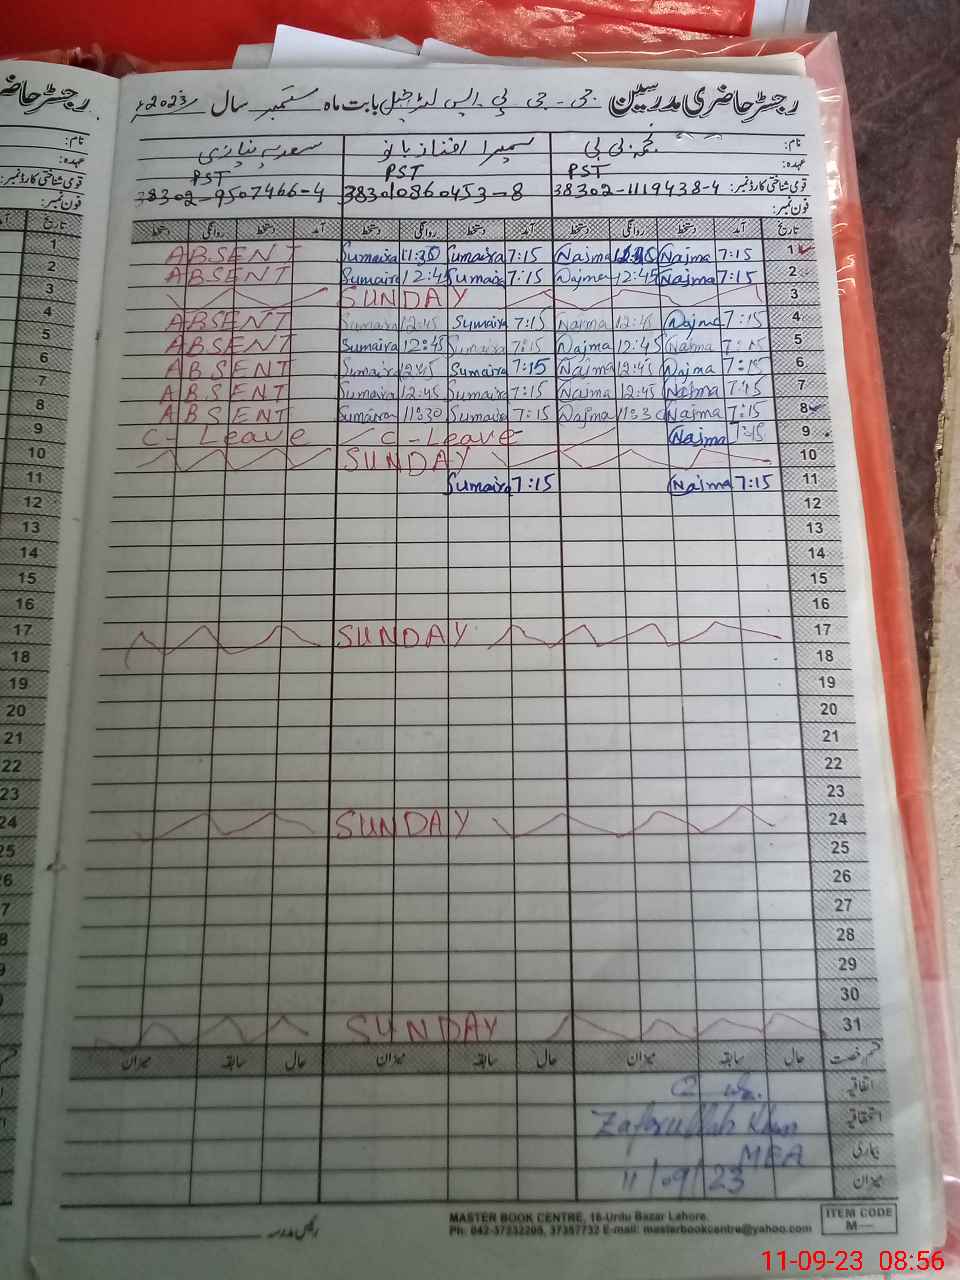 رجسٹر حاضری مدرسین جی۔جی پی ایس بابت ماہ ستمبر سال 2023ء
نام: نجمہ بی بی سمیرا افتاز بانو سعدیہ
عہدہ: PST PST PST
قومی شناختی کارڈ نمبر: 38302-1119438-4 383010860453-8 38302-9507466-4
فون نمبر:
تاریخ آمد دستخط روانگی دستخط آمد دستخط روانگی دستخط آمد دستخط روانگی دستخط تاریخ
1 ABSENT Sumaira 11:30 Sumaira 7:15 Najma Najma 7:15 1
2 ABSENT Sumaira 12:45 Sumaira 7:15 Najma 12:45 Najma 7:15 2
3 SUNDAY 3
4 ABSENT Sumaira 12:45 Sumaira 7:15 Najma 12:45 Najma 7:15 4
5 ABSENT Sumaira 12:45 Sumaira 7:15 Najma 12:45 Najma 7:15 5
6 ABSENT Sumaira 12:45 Sumaira 7:15 Najma 12:45 Najma 7:15 6
7 ABSENT Sumaira 12:45 Sumaira 7:15 Najma 12:45 Najma 7:15 7
8 ABSENT Sumaira 11:30 Sumaira 7:15 Najma 11:30 Najma 7:15 8
9 C-Leave C-Leave Najma 9
10 SUNDAY 10
11 Sumaira 7:15 Najma 7:15 11
12 12
13 13
14 14
15 15
16 16
17 SUNDAY 17
18 18
19 19
20 20
21 21
22 22
23 23
24 SUNDAY 24
25 25
26
27
28
29
30
SUNDAY 31
قسم رخصت حال سابقہ میزان حال سابقہ میزان حال سابقہ میزان
اتفاقیہ
استحقاقیہ Zafarullah Khan
بیماری MEA
میزان 11/09/23
رئیس مدرسہ
MASTER BOOK CENTRE, 16-Urdu Bazar Lahore.
Ph: 042-37232205, 37357732 E-mail: masterbookcentre@yahoo.com
ITEM CODE
M—
11-09-23 08:56